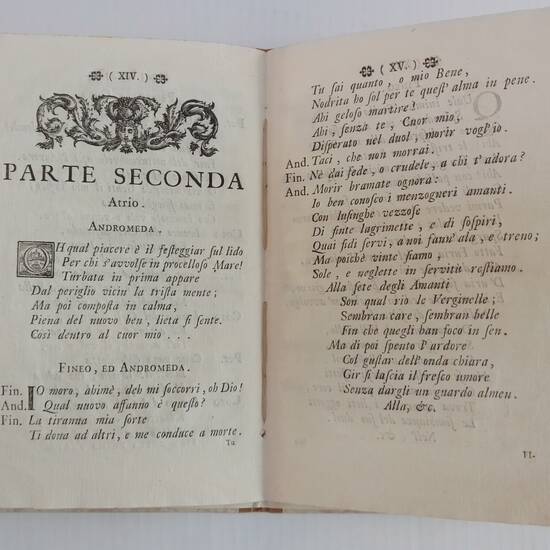 ( XIV. )
PARTE SECONDA
Atrio.
ANDROMEDA.
OH qual piacere è il festeggiar sul lido
Per chi s'avvolse in procelloso Mare!
Turbata in prima appare
Dal periglio vicin la trista mente;
Ma poi composta in calma,
Piena del nuovo ben, lieta si sente.
Così dentro al cuor mio . . .
FINEO, ED ANDROMEDA.
Fin. IO moro, ahimè, deh mi soccorri, oh Dio!
And. Qual nuovo affanno è questo?
Fin. La tiranna mia sorte
Ti dona ad altri, e me conduce a morte.
Tu
( XV. )
Tu sai quanto, o mio Bene,
Nodrita ho sol per te quest'alma in pene.
Ahi geloso martire!
Ahi, senza te, Cuor mio,
Disperato nel duol, morir vogl'io.
And. Taci, che non morrai.
Fin. Nè dai fede, o crudele, a chi t'adora?
And. Morir bramate ognora:
Io ben conosco i menzogneri amanti.
Con lusinghe vezzose
Di finte lagrimette, e di sospiri,
Quai fidi servi, a noi faun'ala, e treno;
Ma poichè vinte siamo,
Sole, e neglette in servitù restiamo.
Alla sete degli Amanti
Son qual rio le Verginelle;
Sembran care, sembran belle
Fin che quegli han foco in sen.
Ma di poi spento l'ardore
Col gustar dell'onda chiara,
Gir si lascia il fresco umore
Senza dargli un guardo almeu.
Alla, &c.
VI.